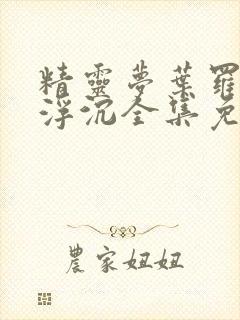 精靈夢葉羅
浮沉全集免
農家妞妞